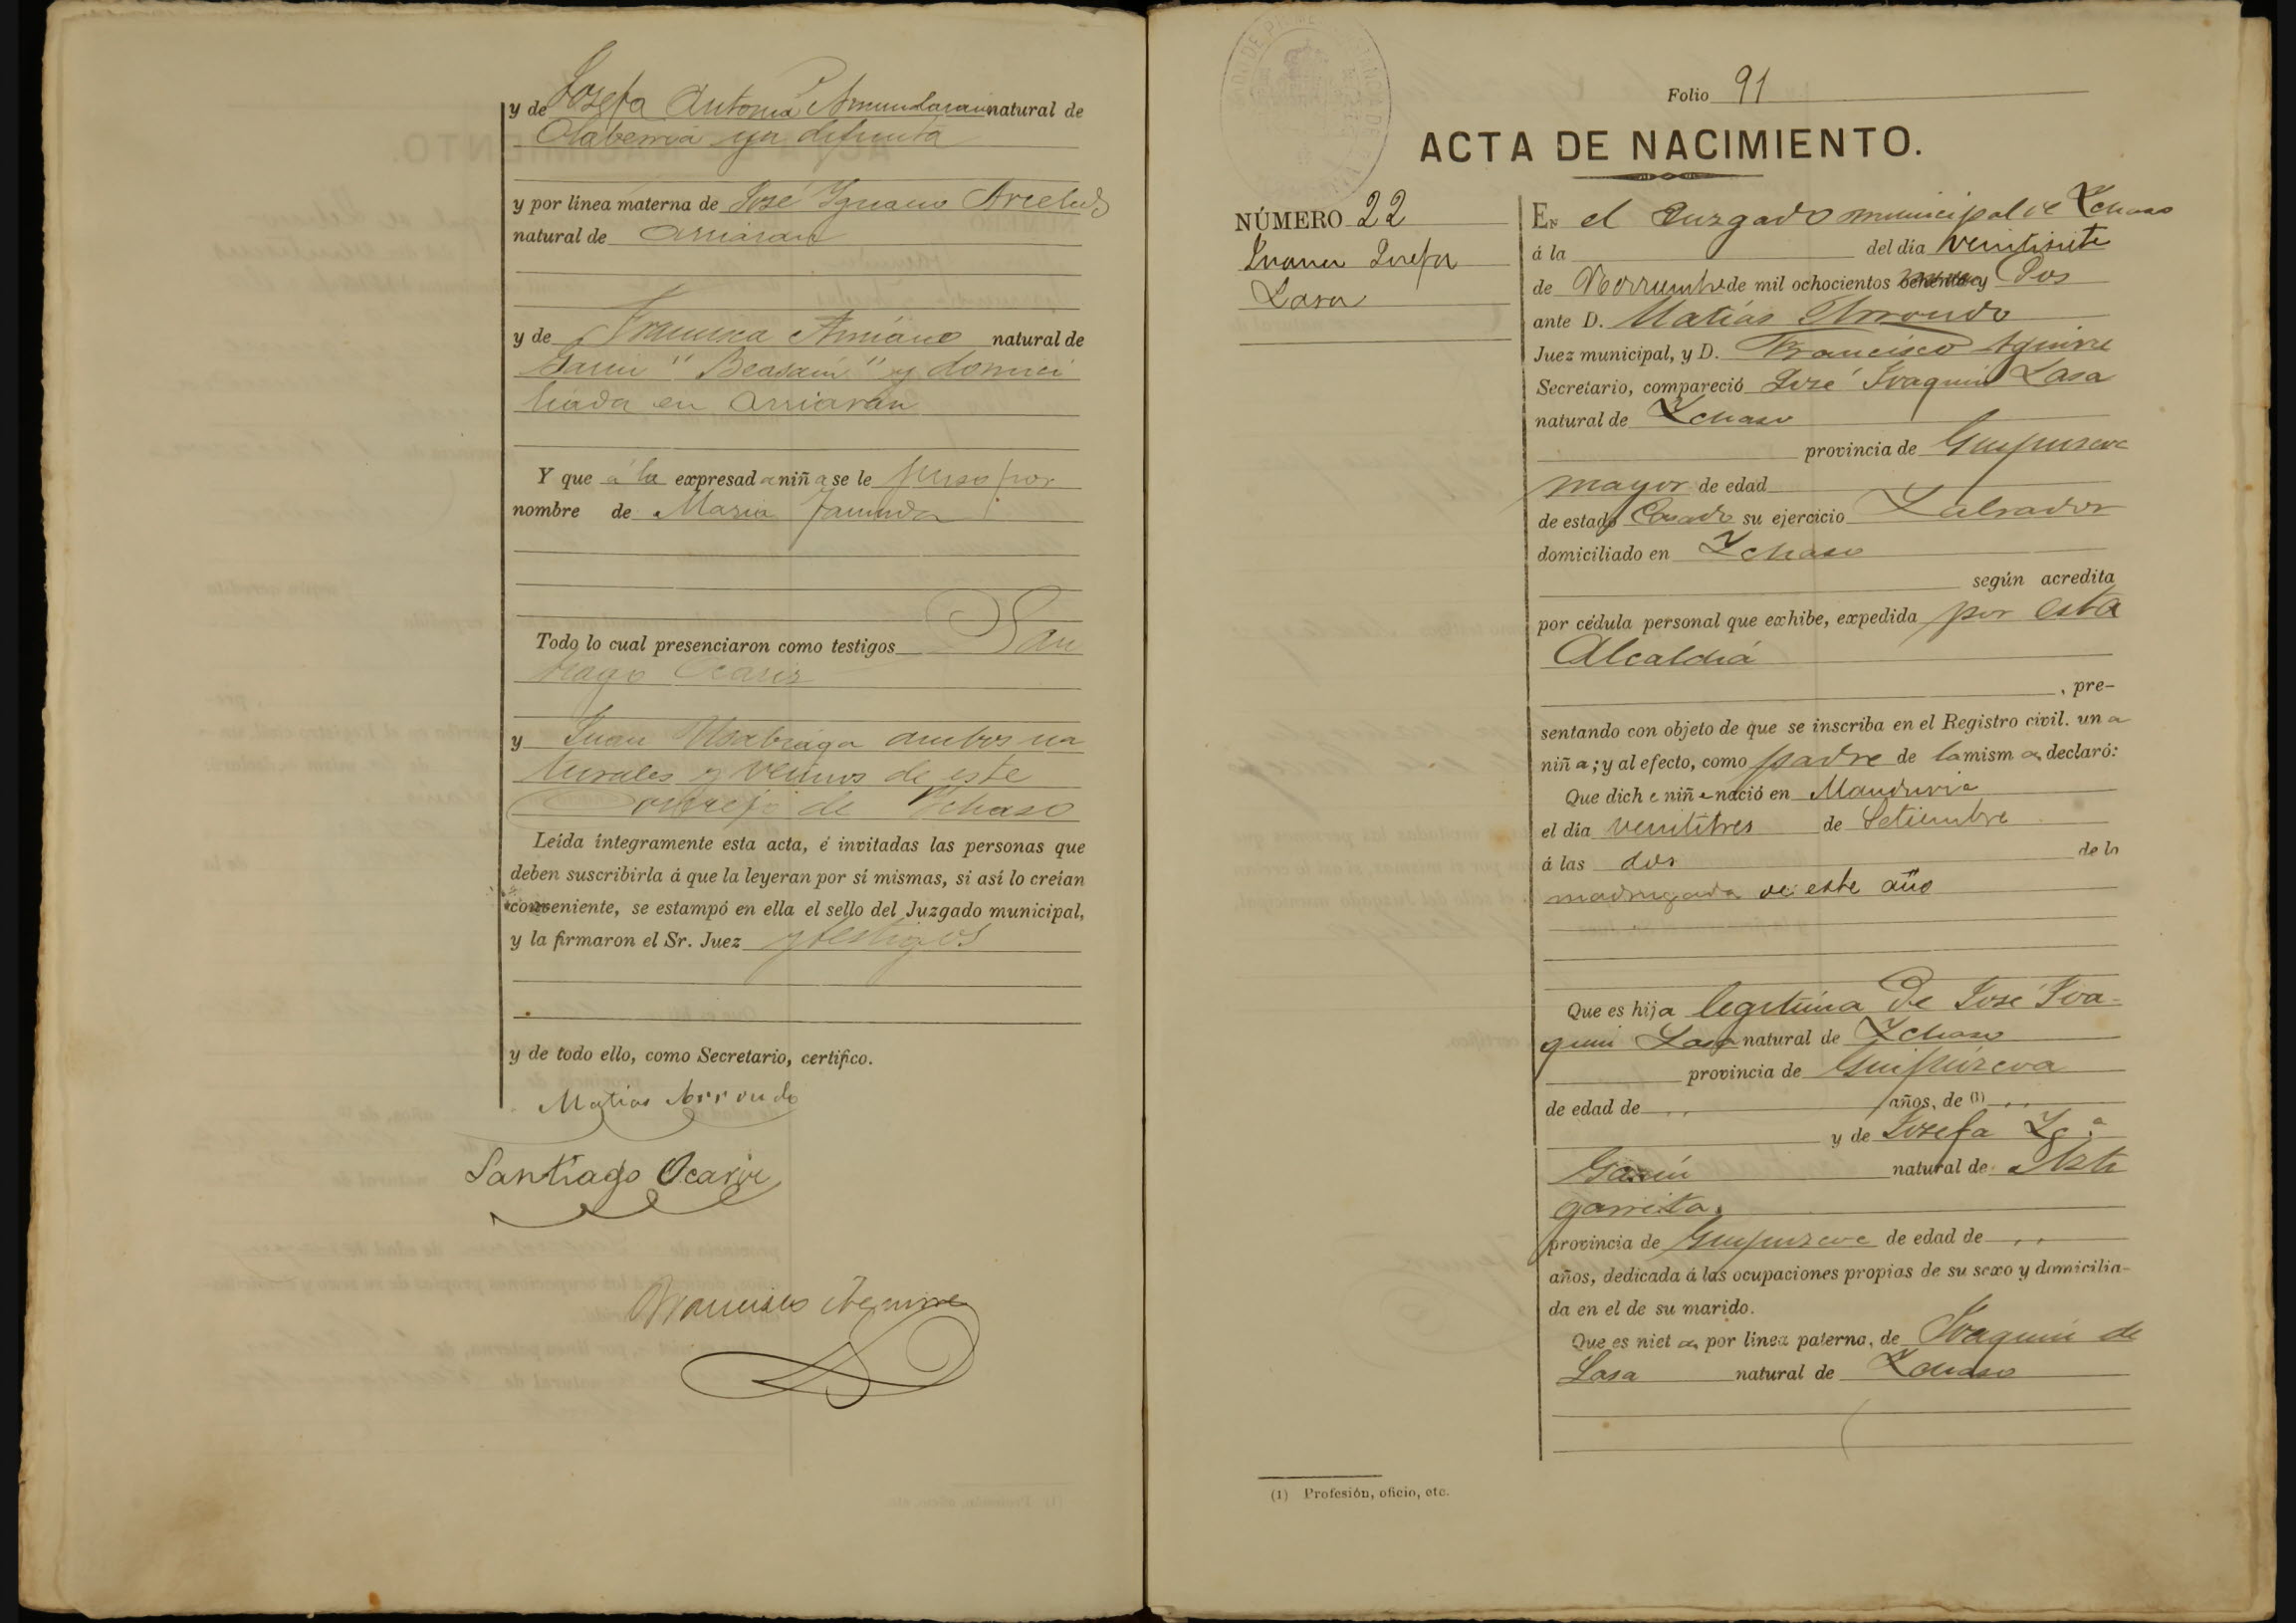 y de Josefa Antonia Amundarain natural de
Olaberria ya difunta
y por línea materna de José Ignacio Arcelus
natural de Arriaran
y de Francisca Amiano natural de
Garin "Beasain" y domici
liada en Arriaran
Y que á la expresada niña se le puso por
nombre de Maria Facunda
Todo lo cual presenciaron como testigos San
tiago Ocariz
y Juan Usabiaga ambos na
turales y vecinos de este
Concejo de Ichaso
Leída íntegramente esta acta, é invitadas las personas que
deben suscribirla á que la leyeran por sí mismas, si así lo creían
conveniente, se estampó en ella el sello del Juzgado municipal,
y la firmaron el Sr. Juez y testigos
y de todo ello, como Secretario, certifico.
Matias Arrondo
Santiago Ocariz
Francisco Aguirre
Folio 91
ACTA DE NACIMIENTO.
NÚMERO 22
Juana Josefa
Lasa
En el Juzgado municipal de Ychaso
á la del día veintisiete
de Noviembre de mil ochocientos y Dos
ante D. Matias Arrondo
Juez municipal, y D. Francisco Aguirre
Secretario, compareció José Joaquin Lasa
natural de Ychaso
provincia de Guipuzcoa
mayor de edad
de estado Casado su ejercicio Labrador
domiciliado en Ychaso
según acredita
por cédula personal que exhibe, expedida por esta
Alcaldiá
, pre-
sentando con objeto de que se inscriba en el Registro civil. una
niña; y al efecto, como padre de la misma declaró:
Que dicha niña nació en Mandubia
el día veintitres de Setiembre
á las dos de la
madrugada de este año
Que es hija legitima De José Joa-
quin Lasa natural de Ychaso
provincia de Guipúzcoa
de edad de años, de (1)
y de Josefa Yg.ª
Garin natural de Asti
garreta.
provincia de Guipuzcoa de edad de
años, dedicada á las ocupaciones propias de su sexo y domicilia-
da en el de su marido.
Que es nieta por línea paterna, de Joaquin de
Lasa natural de Ychaso
(1) Profesión, oficio, etc.